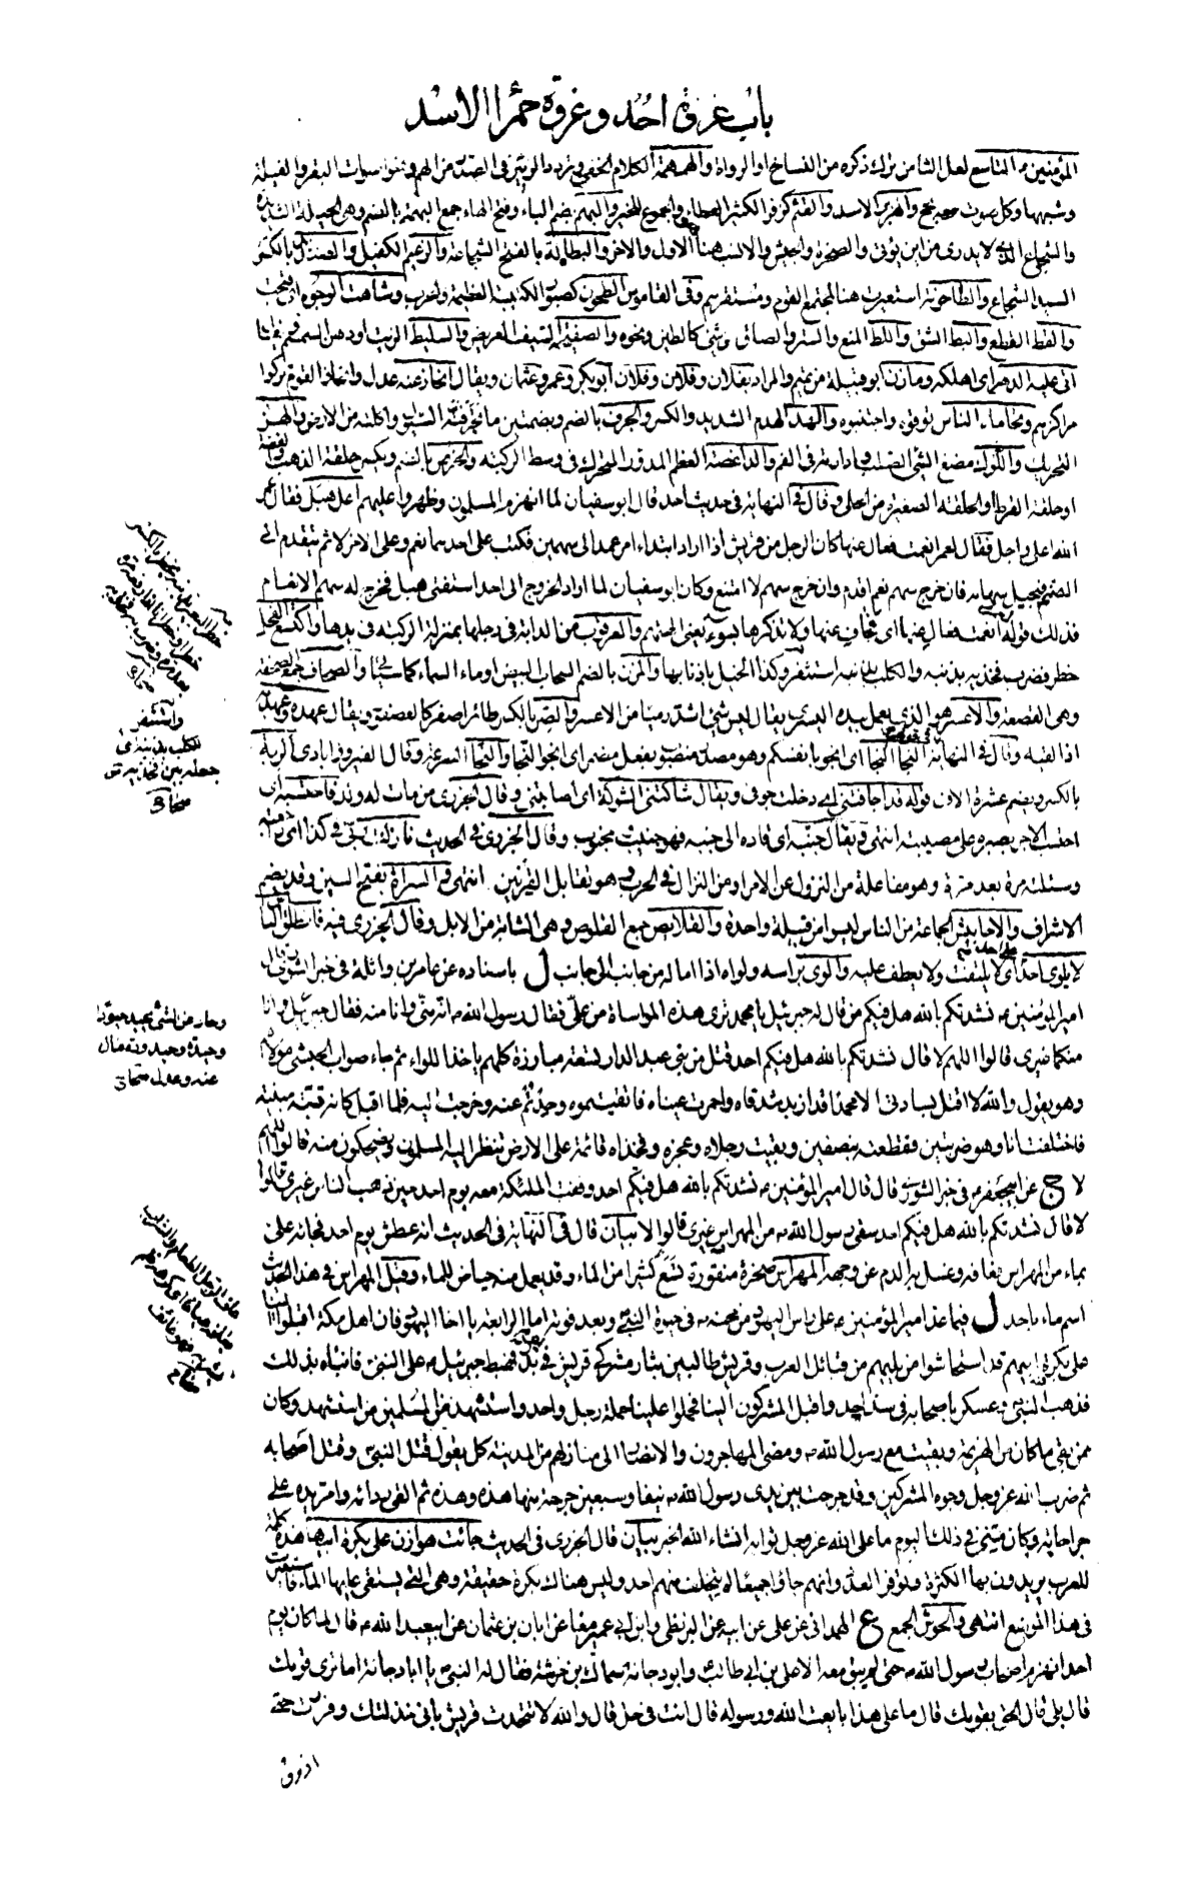 باب غزوة احد وغزوة حمراء الاسد
المؤمنين ع التاسع لعل الثامن ترك ذكره من النساخ او الرواة والهمهمة الكلام الخفي وتردد الزئير في الصدر من الهم ونحو اصوات البقر والفيلة
وشبهها وكل صوت معه بحح والهزبر الاسد والقثم كزفر الكثير العطاء والجموع للخير والبهم بضم الباء وفتح الهاء جمع البهمة بالضم وهى الحيلة الشديدة
والشجاع الذى لا يدرى من اين يؤتى والصخرة والجيش والانسب هنا الاول والاخر والبطالة بالفتح الشجاعة والزعيم الكفيل والصنديد بالكسر
السيد الشجاع والطاحونة استعيرت هنا لمجتمع القوم ومستقرهم وفى القاموس الطحون كصبور الكتيبة العظيمة والحرب وشاهت الوجوه اى قبحت
والقط القطع والبط الشق واللط المنع والستر والصاق شئ كالطين ونحوه والصفيحة السيف العريض والسليط الزيت او دهن السمسم
اتى عليه الدهر اى اهلكه ومازن ابو قبيلة من تميم والمراد بفلان وفلان وفلان ابو بكر وعمر وعثمان ويقال انحاز عنه عدل وانحاز القوم تركوا
مراكزهم وتحاماه الناس توقوه واجتنبوه والهد الهدم الشديد والكسر والجرف بالضم وبضمتين ما تجرفته السيول واكلته من الارض والهز
التحريك واللوك مضغ الشئ الصلب وادارته فى الفم والداغصة العظم المدور المتحرك فى وسط الركبة والخرص بالضم ويكسر حلقة الذهب والفضة
او حلقة القرط او الحلقة الصغيرة من الحلى وقال فى النهاية فى حديث احد قال ابو سفيان لما انهزم المسلمون وظهروا عليهم اعل هبل فقال عمر
الله اعلى واجل فقال لعمر انعمت فعال عنها كان الرجل من قريش اذا اراد ابتداء امر عمد الى سهمين فكتب على احدهما نعم وعلى الاخر لا ثم يتقدم الى
الصنم فيجيل سهامه فان خرج سهم نعم اقدم وان خرج سهم لا امتنع وكان ابو سفيان لما اراد الخروج الى احد استفتى هبل فخرج له سهم الانعام
فذلك قوله انعمت فعال عنها اى تجاف عنها ولا تذكرها بسوء يعنى الهتهم والعرقوب من الدابة فى رجلها بمنزلة الركبة فى يدها واكتسع الفحل
خطر فضرب فخذيه بذنبه والكلب بذنبه استثفر وكذا الخيل باذنابها والمزن بالضم السحاب البيض او ماء السماء كما سيأتى والصحاف جمع الصحفة
وهى القصعة والاعسر هو الذى يعمل بيده اليسرى يقال ليس شئ اشد رميا من الاعسر والصر بالكسر طائر اصفر كالعصفور ويقال عهده وعهد به
اذا لقيه وقال فى النهاية النجا النجا اى انجوا بانفسكم وهو مصدر منصوب بفعل مضمر اى انجوا النجا والنجا السرعة وقال الفيروزابادى الربة
بالكسر ويضم عشرة الاف قوله قد اجافتنى اى دخلت جوفى ويقال شاكتنى الشوكة اى اصابتنى وقال الجزرى من مات له ولد فاحتسبه اى
احتسب الاجر بصبره على مصيبته انتهى ويقال جنبه اى قاده الى جنبه فهو جنيب مجنوب وقال الجزرى فى الحديث نازلت ربى فى كذا اى راجعته
وسئلته مرة بعد مرة وهو مفاعلة من النزول عن الامر او من النزال فى الحرب وهو تقابل القرنين انتهى والسراة بفتح السين وقد يضم
الاشراف والاحابيش الجماعة من الناس ليسوا من قبيلة واحدة والقلايص جمع القلوص وهى الشابة من الابل وقال الجزرى فيه فانطلق الناس
لا يلوى احد على احد اى لا يلتفت ولا يعطف عليه والوى براسه ولواه اذا اماله من جانب الى جانب ل باسناده عن عامر بن واثلة فى خبر الشورى قال
امير المؤمنين ع نشدتكم بالله هل فيكم من قال له جبرئيل يا محمد ترى هذه المواساة من على فقال رسول الله ص انه منى وانا منه فقال جبرئيل وانا
منكما غيرى قالوا اللهم لا قال نشدتكم بالله هل فيكم احد قتل من بنى عبد الدار تسعة مبارزة كلهم ياخذ اللواء ثم جاء صواب الحبشى مولاهم
وهو يقول والله لا اقتل بسادتى الا محمدا قد ازبد شدقاه واحمرت عيناه فاتقيتموه وحدتم عنه وخرجت اليه فلما اقبل كانه قبة مبنية
فاختلفت انا وهو ضربتين فقطعته بنصفين وبقيت رجلاه وعجزه وفخذاه قائمة على الارض ينظر اليه المسلمون ويضحكون منه قالوا اللهم
لا ج عن ابيجعفر ع فى خبر الشورى قال قال امير المؤمنين ع نشدتكم بالله هل فيكم احد وقفت الملئكة معه يوم احد حين ذهب الناس غيرى قالوا
لا قال نشدتكم بالله هل فيكم احد سقى رسول الله ص من المهراس غيرى قالوا لا بيان قال فى النهاية فى الحديث انه عطش يوم احد فجائه على
بماء من المهراس فعافه وغسل به الدم عن وجهه المهراس صخرة منقورة تسع كثيرا من الماء وقد يعمل منه حياض للماء وقيل المهراس فى هذا الحديث
اسم ماء باحد ل فيما عد امير المؤمنين ع على راس اليهود من محنه ع فى حيوة النبى وبعد فوته اما الرابعة يا اخا اليهود فان اهل مكة اقبلوا الينا
على بكرة ابيهم قد استحاشوا من يليهم من قبائل العرب وقريش طالبين بثار مشركى قريش فى يوم بدر فهبط جبرئيل ع على النبى ص فانباه بذلك
فذهب النبى وعسكر باصحابه فى سد احد واقبل المشركون الينا فحملوا علينا حملة رجل واحد واستشهد من المسلمين من استشهد وكان
ممن بقى ما كان من الهزيمة وبقيت مع رسول الله ص ومضى المهاجرون والانصار الى منازلهم من المدينة كل يقول قتل النبى ص وقتل اصحابه
ثم ضرب الله عز وجل وجوه المشركين وقد جرحت بين يدى رسول الله ص نيفا وسبعين جرحة منها هذه وهذه ثم القى ردائه وامر يده على
جراحاته وكان منى فى ذلك اليوم ما على الله عز وجل ثوابه انشاء الله الخبر بيان قال الجزرى فى الحديث جائت هوازن على بكرة ابيها هذه كلمة
للعرب يريدون بها الكثرة وتوفر العدد وانهم جاؤا جميعا لم يتخلف منهم احد وليس هناك بكرة حقيقة وهى التى يستقى عليها الماء فاستعيرت
فى هذا الموضع انتهى والحوش الجمع ع الهمدانى عن على عن ابيه عن البزنطى وابن ابى عمير معا عن ابان بن عثمان عن ابيعبد الله ع قال لما كان يوم
احد انهزم اصحاب رسول الله ص حتى لم يبق معه الا على بن ابى طالب ع وابو دجانة سماك بن خرشة فقال له النبى ص يا ابا دجانة اما ترى قومك
قال بلى قال الحق بقومك قال ما على هذا بايعت الله ورسوله قال انت فى حل قال والله لا تتحدث قريش بانى خذلتك وفررت حتى
اذوق
واستثفر
الكلب بذنبه اى
جعله بين فخذيه
صحاح
وحاد عن الشئ يحيد حيودا
وحيدة وحيدودة مال
عنه وعدل صحاح